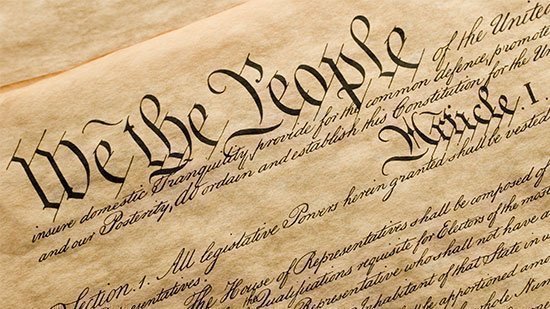 We the People of the United
insure domestic Tranquility, provide for the common defence, promote
and our Posterity, do ordain and establish this Constitution for the Un
Article. I.
Section. 1. All legislative Powers herein granted shall be vested
Representatives.
The House of Representatives shall be composed of
Qualifications requisite for Electors of the most
Representative who shall not have a
Inhabitant of that State in w
shall be apportioned amo
whole Num